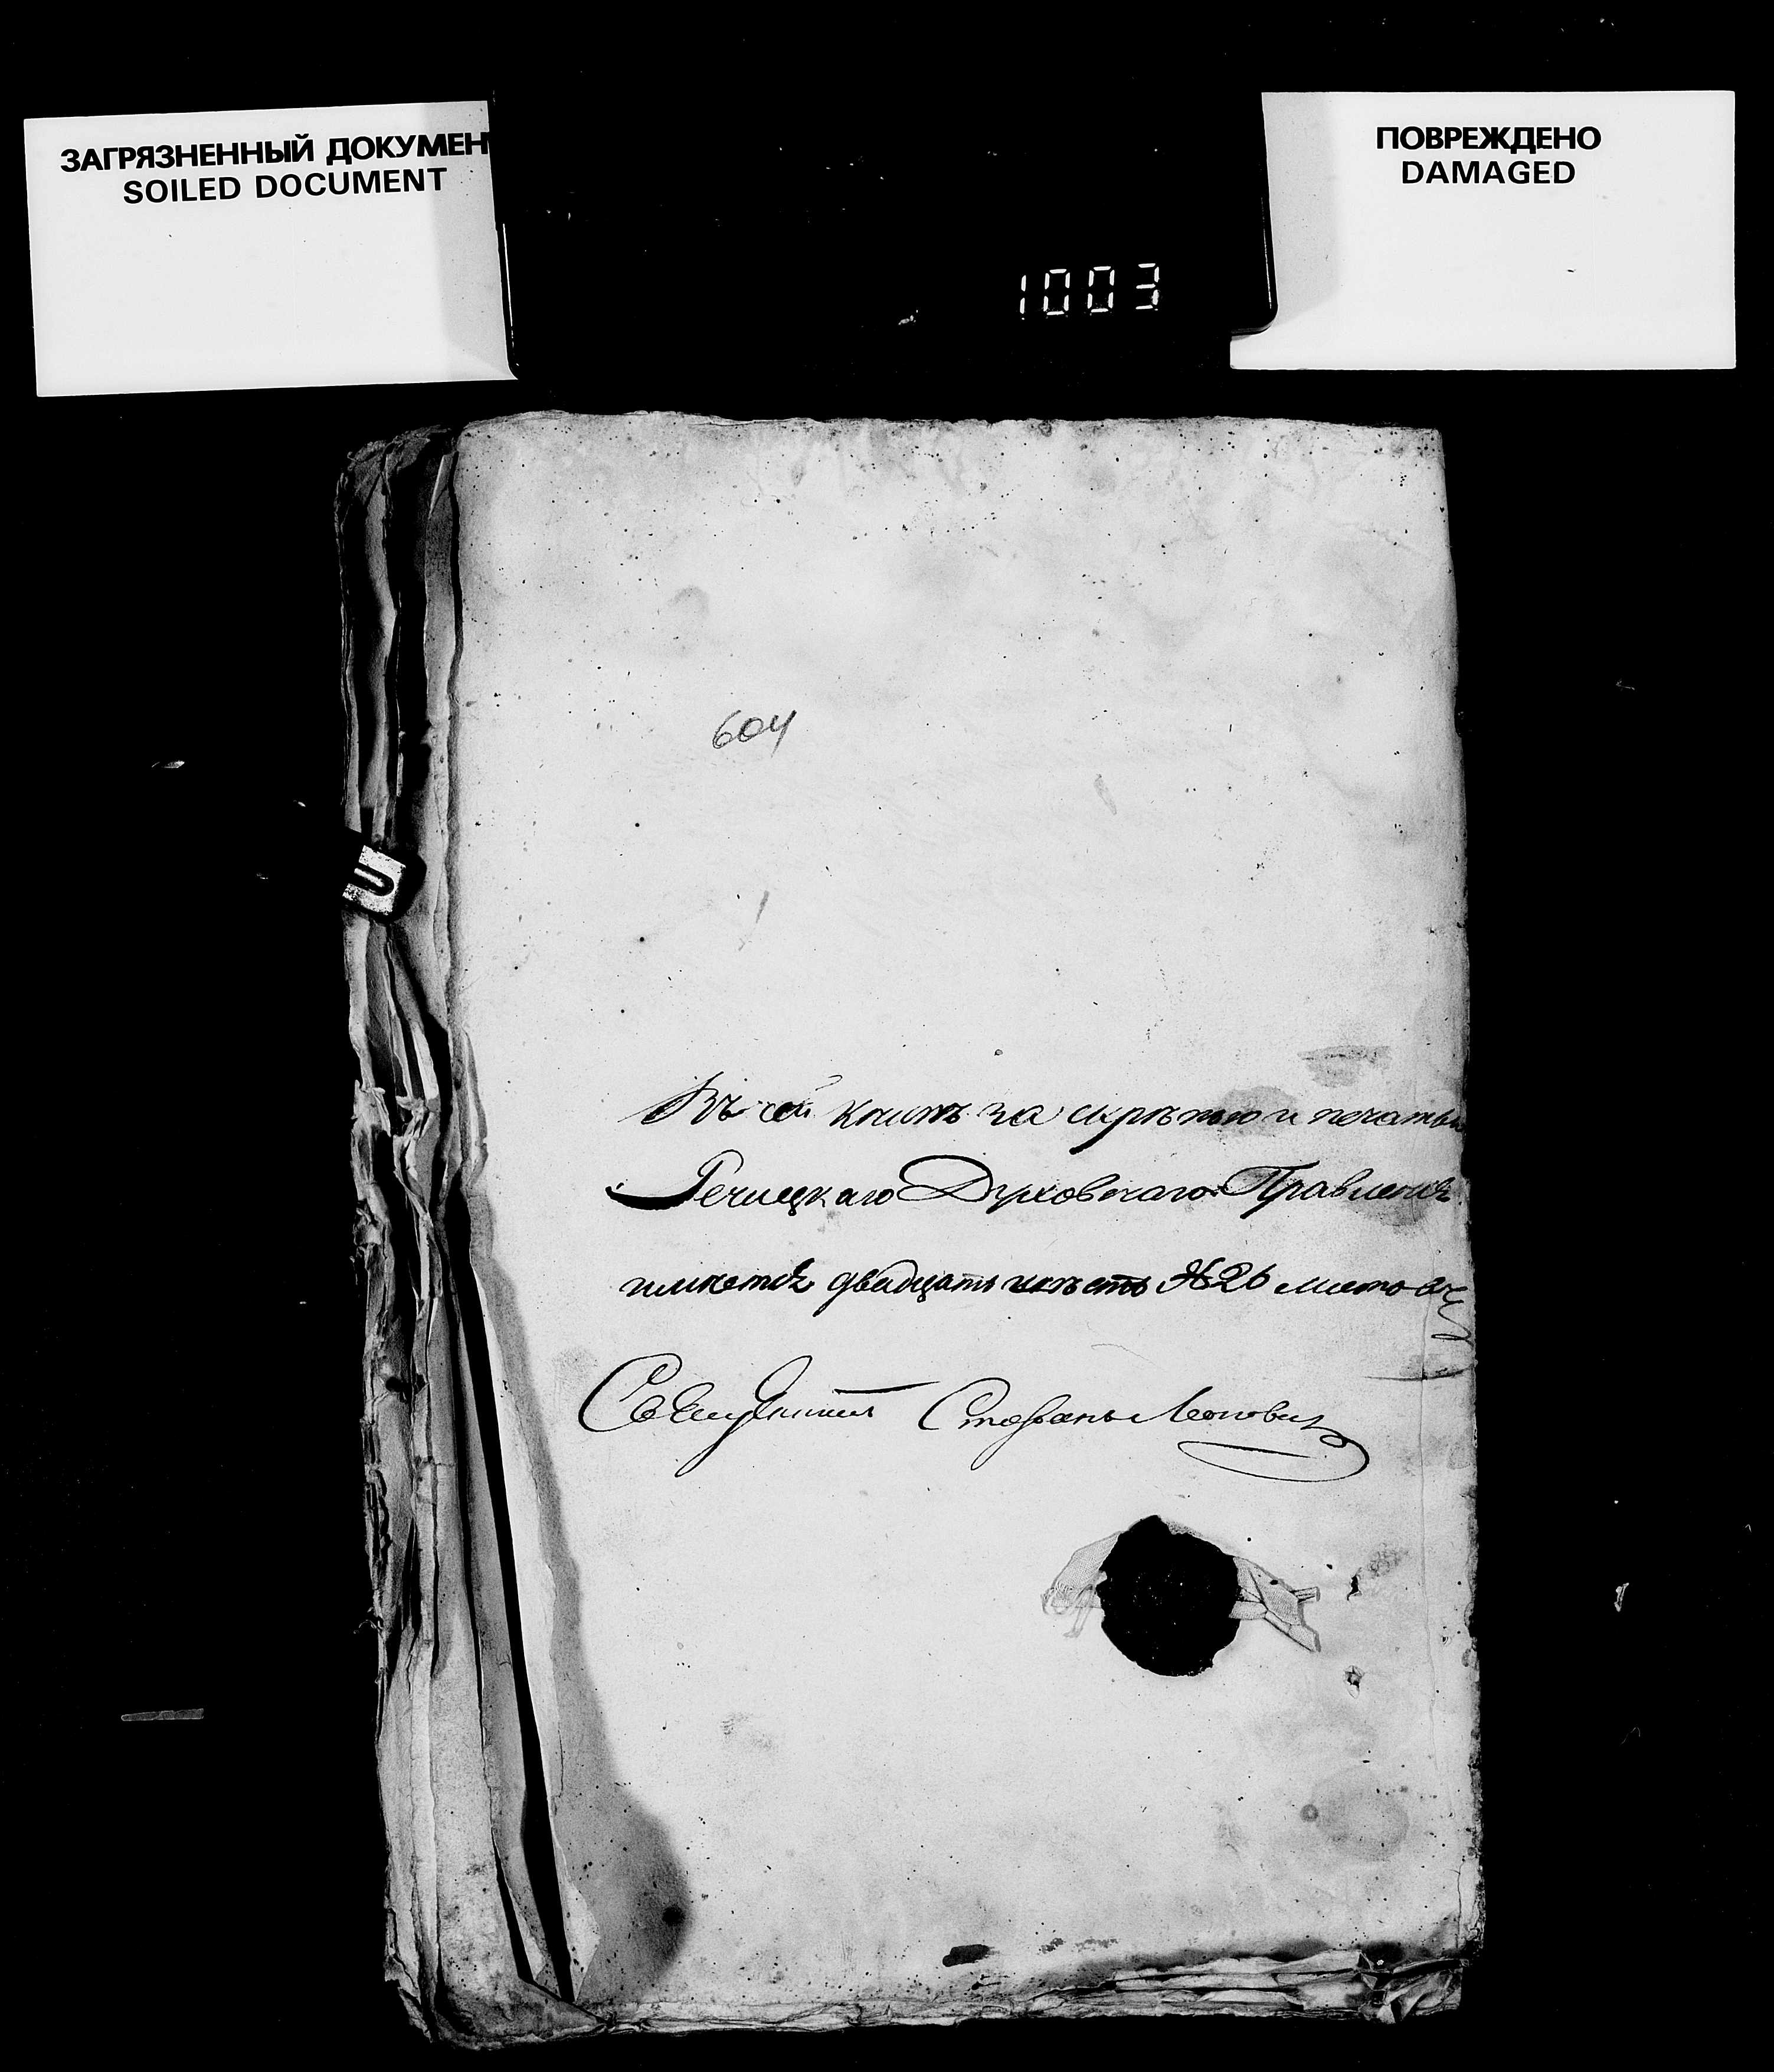 ЗАГРЯЗНЕННЫЙ ДОКУМЕН
SOILED DOCUMENT
ПОВРЕЖДЕНО
DAMAGED
1003
604
Въ сей книгѣ за скрѣпою и печатью
Речицкаго Духовнаго Правленія
имѣется двадцать шесть №26 листовъ
Стефанъ Леонович